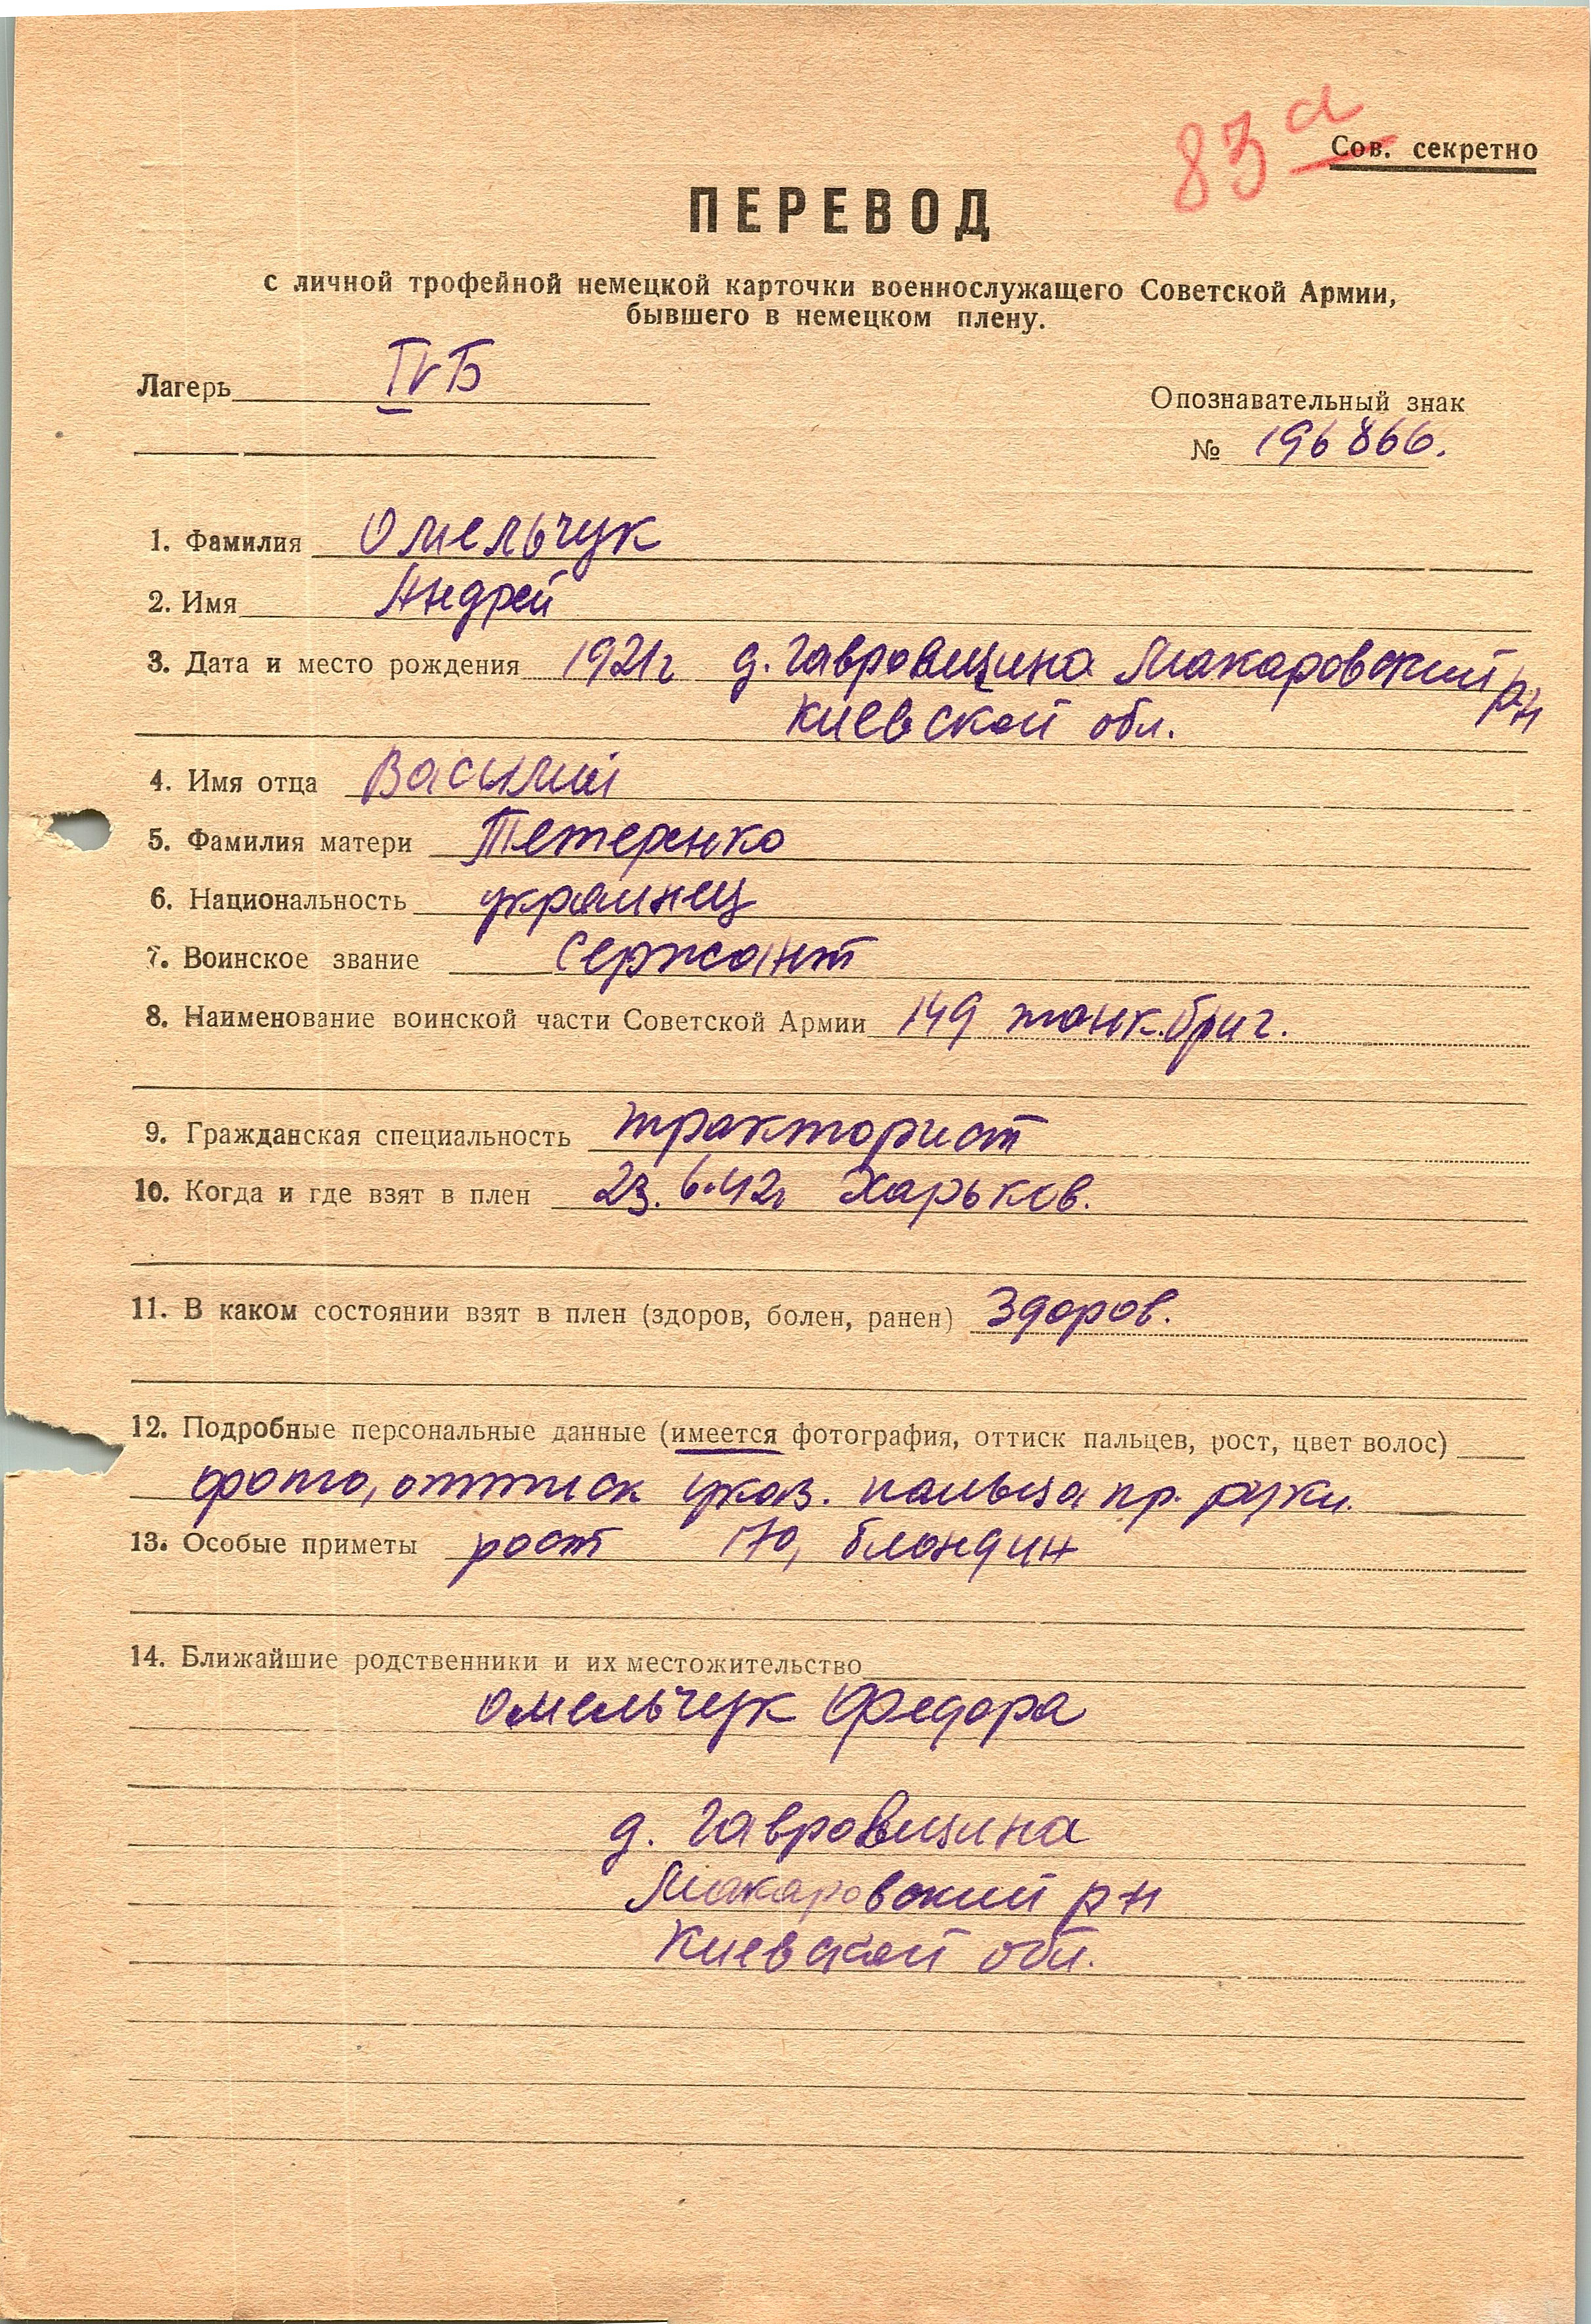 83а
Сов. секретно
ПЕРЕВОД
с личной трофейной немецкой карточки военнослужащего Советской Армии,
бывшего в немецком плену.
Лагерь IVБ
Опознавательный знак
№ 196866.
1. Фамилия Омельчук
2. Имя Андрей
3. Дата и место рождения 1921г д. Гавровщина Макаровский р-н
Киевской обл.
4. Имя отца Василий
5. Фамилия матери Тетеренко
6. Национальность украинец
7. Воинское звание Сержант
8. Наименование воинской части Советской Армии 149 танк.бриг.
9. Гражданская специальность тракторист
10. Когда и где взят в плен 23.6.42г Харьков.
11. В каком состоянии взят в плен (здоров, болен, ранен) Здоров.
12. Подробные персональные данные (имеется фотография, оттиск пальцев, рост, цвет волос)
фото, оттиск указ. пальца пр. руки.
13. Особые приметы рост 170, блондин
14. Ближайшие родственники и их местожительство
Омельчук Федора
д. Гавровщина
Макаровский р-н
Киевской обл.